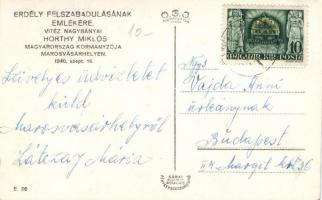 ERDÉLY FELSZABADULÁSÁNAK
EMLÉKÉRE.
VITÉZ NAGYBÁNYAI
HORTHY MIKLÓS
MAGYARORSZÁG KORMÁNYZÓJA
MAROSVÁSÁRHELYEN.
1940. szept. 16.
10-
Szívélyes üdvözletet
küld
Marosvásárhelyről
Mária
E 20
MAGYAR KIR. POSTA
10
Vajda Anni
úrleánynak
Budapest
Margit krt 36